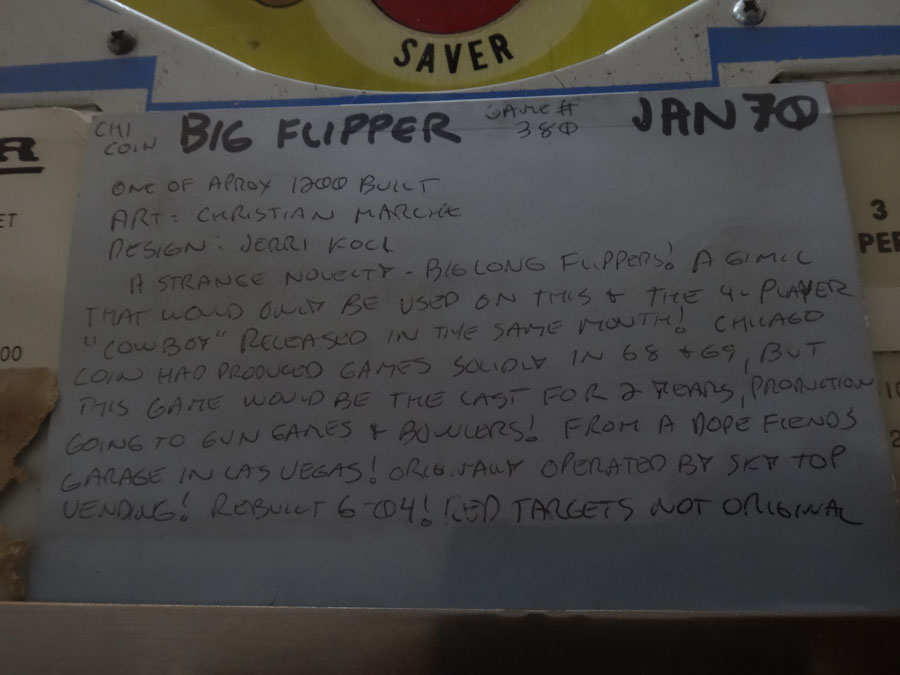 SAVER
CHI COIN BIG FLIPPER GAME # 380 JAN 70
ONE OF APROX 1200 BUILT
ART: CHRISTIAN MARCHE
DESIGN: JERRI KOCI
A STRANGE NOVELTY - BIG LONG FLIPPERS! A GIMIC
THAT WOULD ONLY BE USED ON THIS & THE 4-PLAYER
"COWBOY" RELEASED IN THE SAME MONTH! CHICAGO
COIN HAD PRODUCED GAMES SOLIDLY IN 68 & 69, BUT
THIS GAME WOULD BE THE LAST FOR 2 YEARS, PRODUCTION
GOING TO GUN GAMES & BOWLERS! FROM A DOPE FIENDS
GARAGE IN LAS VEGAS! ORIGINALLY OPERATED BY SKY TOP
VENDING! REBUILT 6-04! RED TARGETS NOT ORIGINAL
R
ET
00
3
PER